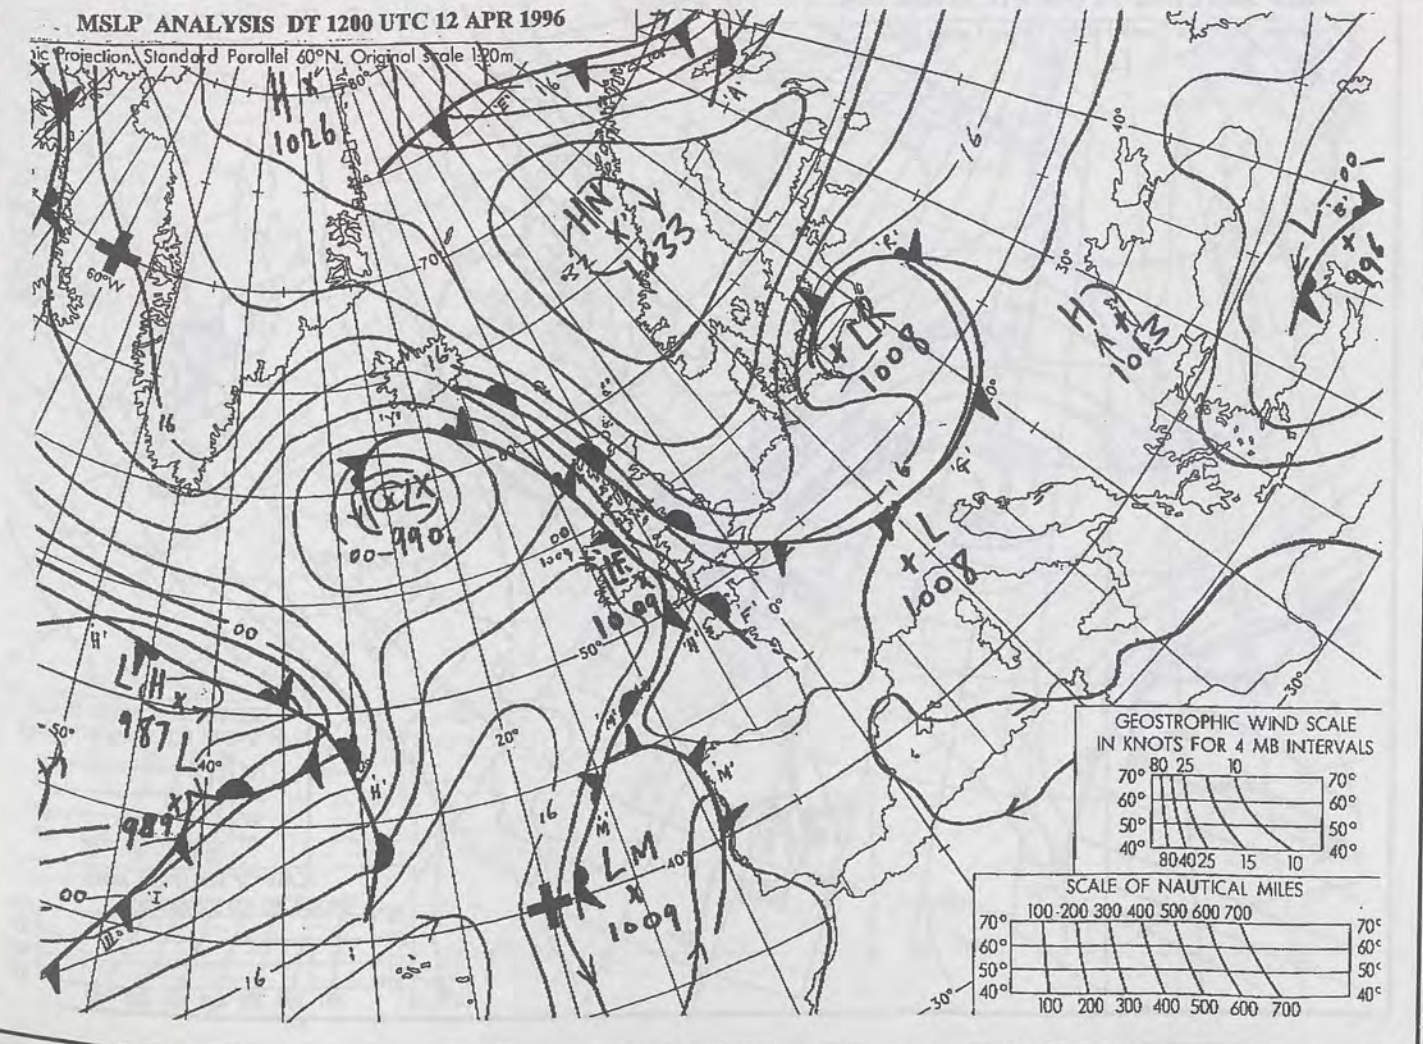 MSLP ANALYSIS DT 1200 UTC 12 APR 1996
ic Projection. Standard Parallel 60°N. Original scale 1:20m
H
1026
80°
16
'F'
'A'
16
40°
HN
1033
70°
60°W
'R'
30°
L
'B'
996
LK
1008
H M
16
16
60°
'R'
16
L
1008
LX
990
00
00
1004
LF
'F'
0°
'H'
50°
'H'
00
L H
987
L
50°
40°
'H'
989
20°
16
'M'
'M'
L M
1009
40°
00
'I'
16
30°
30°
GEOSTROPHIC WIND SCALE
IN KNOTS FOR 4 MB INTERVALS
80 25 10
70° 70°
60° 60°
50° 50°
40° 40°
80 40 25 15 10
SCALE OF NAUTICAL MILES
100 200 300 400 500 600 700
70° 70°
60° 60°
50° 50°
40° 40°
100 200 300 400 500 600 700